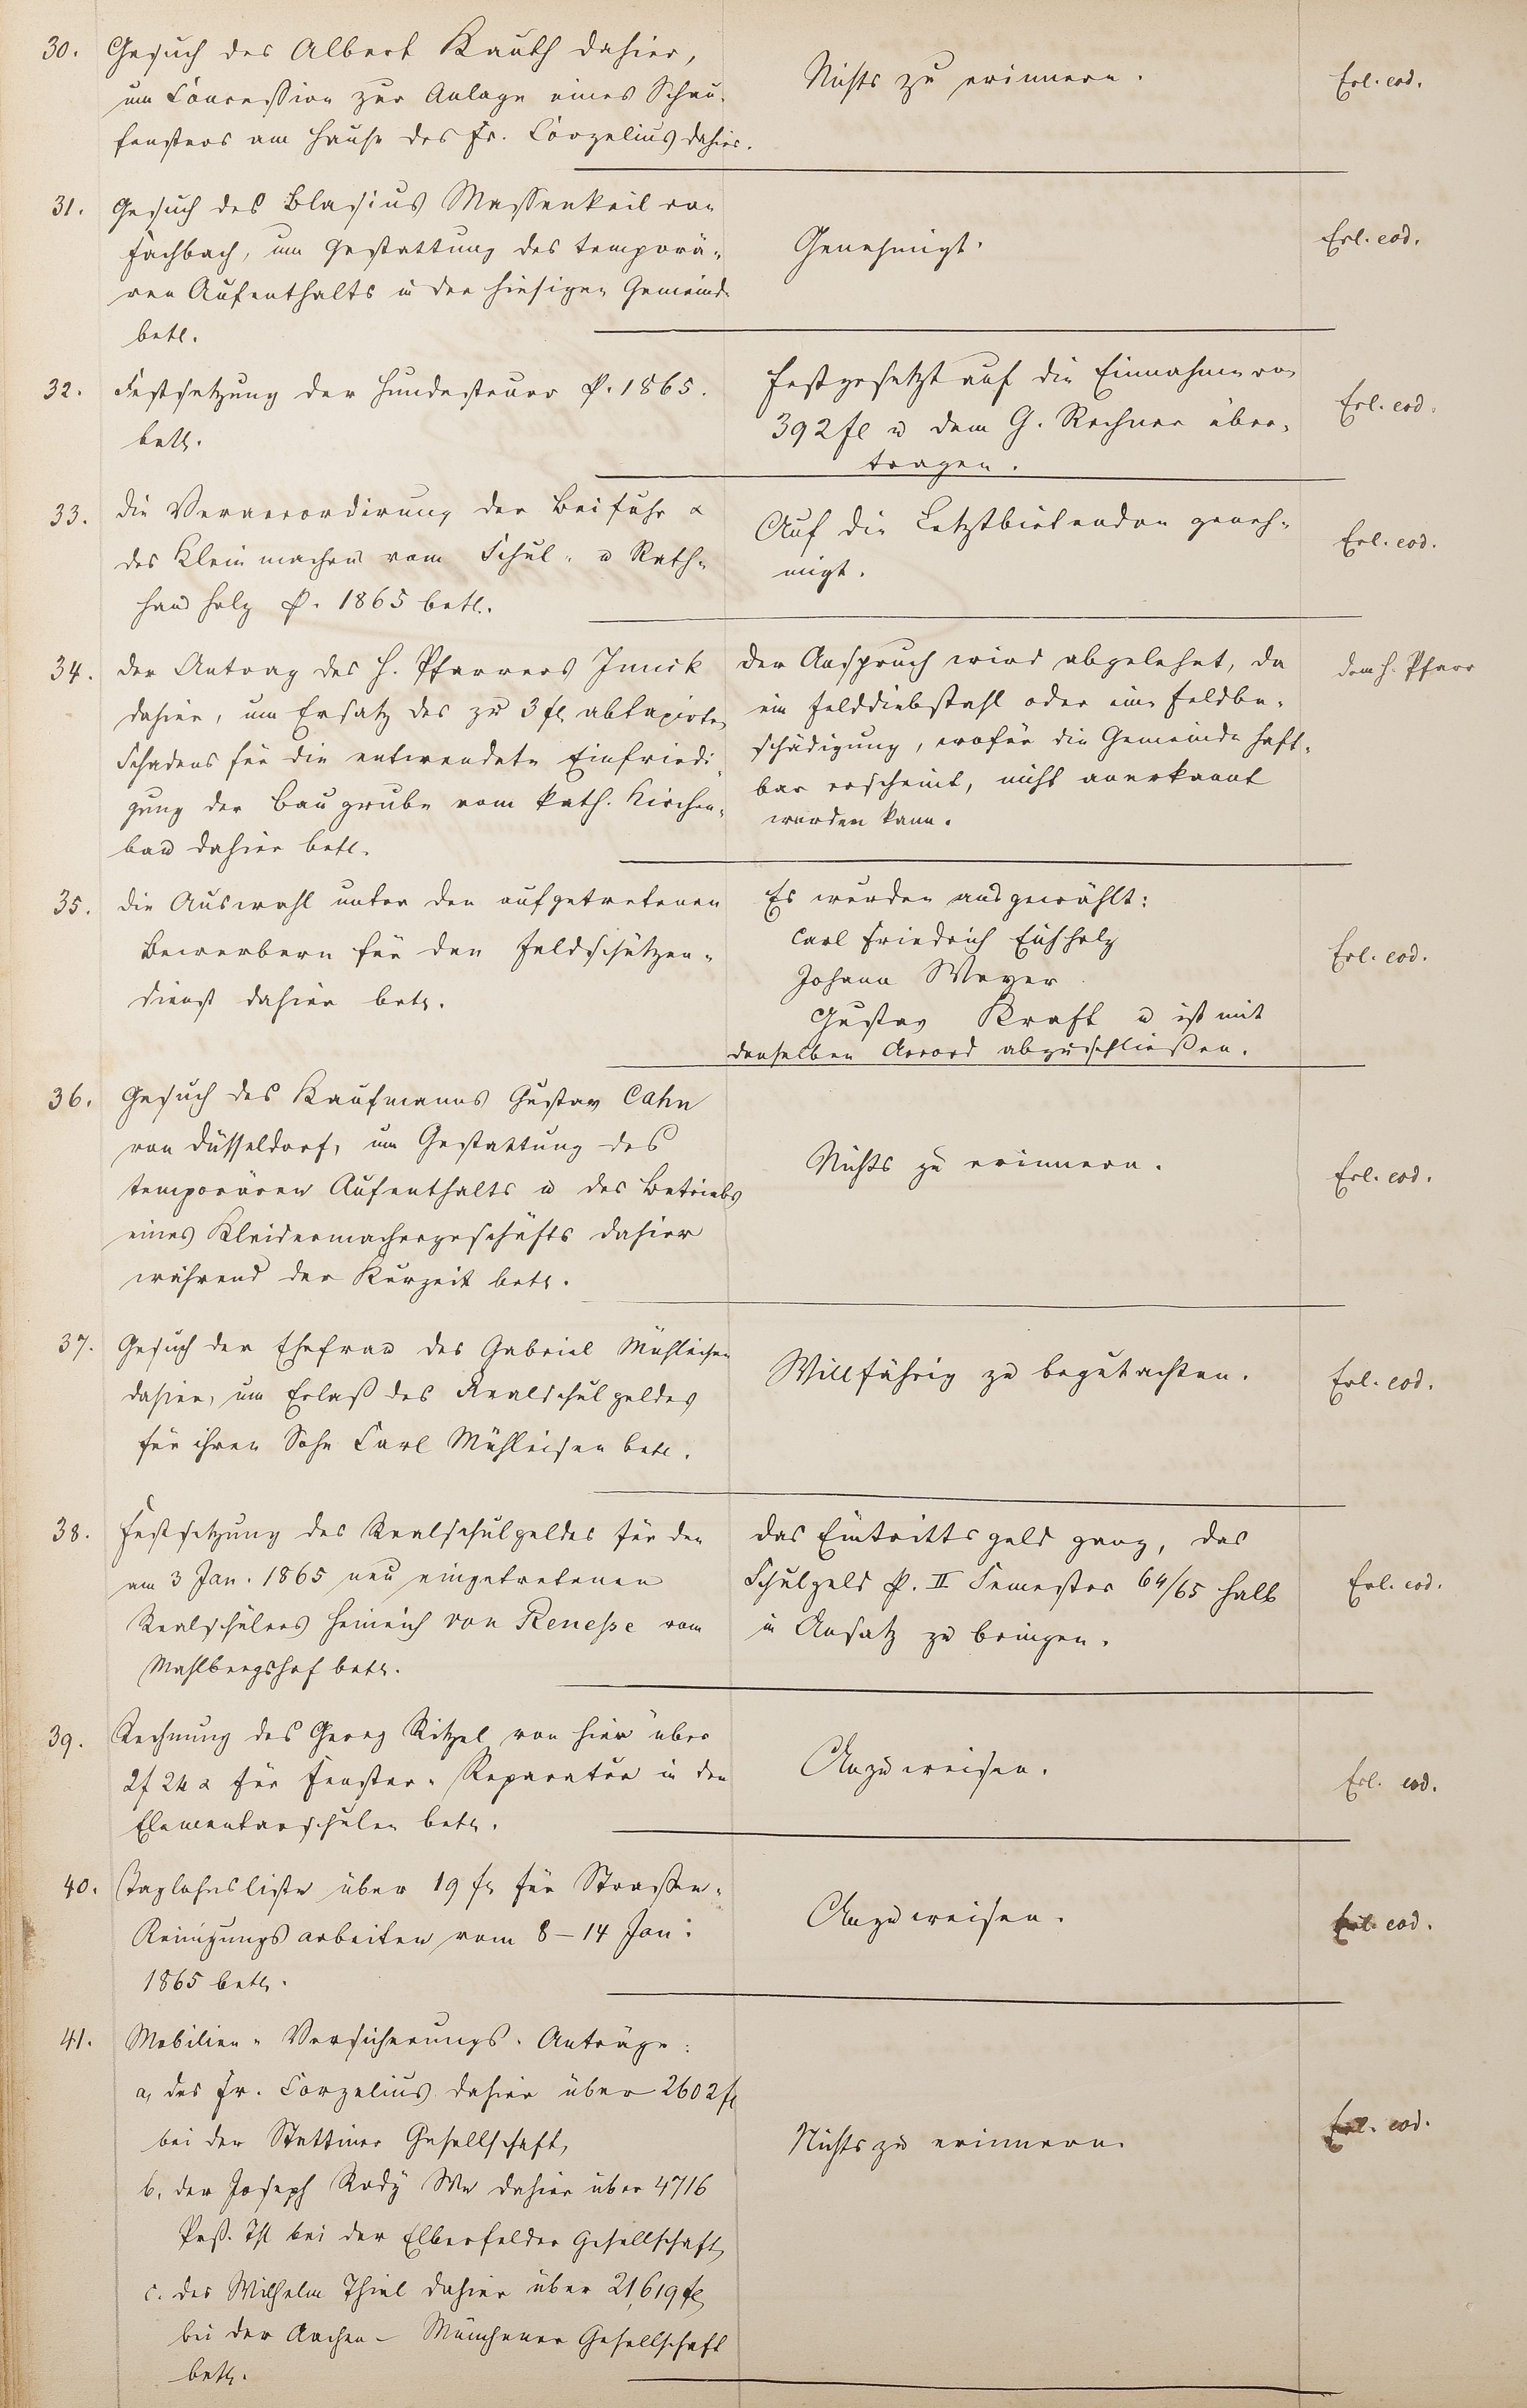 30. Gesuch des Albert Kauth dahier,
um Concession zur Anlage eines Schau-
fensters am Hause des Fr. Corzelius dahier.
Nichts zu erinnern.
Erl. eod.
31. Gesuch des Blasius Massenkeil von
Fachbach, um Gestattung des temporä-
ren Aufenthalts in der hiesigen Gemeinde
betr.
Genehmigt.
Erl. eod.
32. Festsetzung der Hundesteuer p. 1865.
betr.
Festgesetzt auf die Einnahme von
392 fl u dem G. Rechner über-
tragen.
Erl. eod.
33. Die Veraccordirung der Beifuhr &
des Kleinmachens vom Schul- u Rath-
haus holz p. 1865 betr.
Auf die Letztbietenden geneh-
migt.
Erl. eod.
34. Der Antrag des H. Pfarrers
dahier, um Ersatz des zu 3 fl abtaxirten
Schadens für die entwendete Einfriedi-
gung der Baugrube vom kath. Kirchen-
bau dahier betr.
Der Anspruch wird abgelehnt, da
ein Felddiebstahl oder eine Feldbe-
schädigung, wofür die Gemeinde haft-
bar erscheint, nicht anerkannt
werden kann.
dem H. Pfarr
35. Die Auswahl unter den aufgetretenen
Bewerbern für den Feldschützen-
dienst dahier betr.
Es wurden ausgewählt:
Carl Friedrich Eichholz
Johann Weyer
Gustav Kraft u ist mit
denselben Accord abzuschließen.
Erl. eod.
36. Gesuch des Kaufmanns Gustav Cahn
von Düsseldorf, um Gestattung des
temporären Aufenthalts u des Betriebs
eines Kleidermachergeschäfts dahier
während der Kurzeit betr.
Nichts zu erinnern.
Erl. eod.
37. Gesuch der Ehefrau des Gabriel Mühleisen
dahier, um Erlaß des Realschulgeldes
für ihren Sohn Carl Mühleisen betr.
Willfährig zu begutachten.
Erl. eod.
38. Festsetzung des Realschulgeldes für den
am 3 Jan. 1865 neu eingetretenen
Realschülers Heinrich von Renesse vom
Mahlbergshof betr.
Das Eintrittsgeld ganz, das
Schulgeld p. II Semester 64/65 halb
in Ansatz zu bringen.
Erl. eod.
39. Rechnung des Georg Ritzel von hier über
2 f 24 x für Fenster-Reparatur in den
Elementarschulen betr.
Anzuweisen.
Erl. eod.
40. Taglohnsliste über 19 fl für Straßen-
Reinigungsarbeiten vom 8 – 14 Jan:
1865 betr.
Anzuweisen.
Erl. eod.
41. Mobilien-Versicherungs-Anträge:
a, des Fr. Corzelius dahier über 2602 fl
bei der Stettiner Gesellschaft,
b, der Joseph Rody We dahier über 4716
Prß. Thl bei der Elberfelder Gesellschaft,
c. des Wilhelm Thiel dahier über 21,619 fl
bei der Aachen – Münchener Gesellschaft
betr.
Nichts zu erinnern.
Erl. eod.